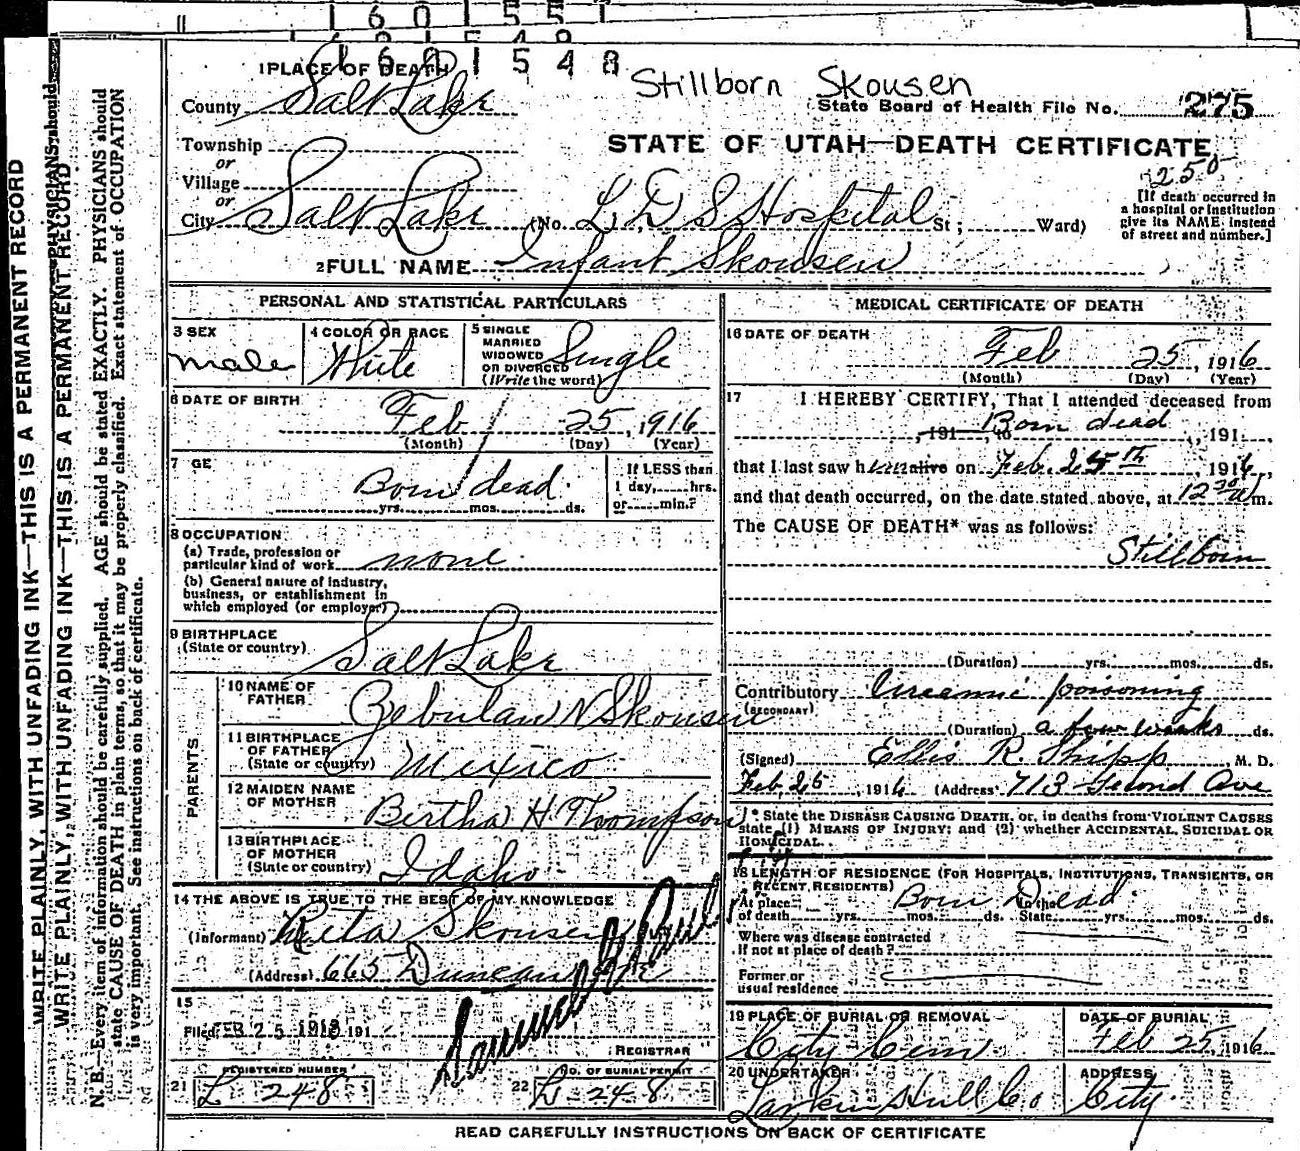 1 6 0 1 5 5 1
1 6 0 1 5 4 9
1 6 0 1 5 4 8
Stillborn Skousen
1 PLACE OF DEATH
County Salt Lake
State Board of Health File No. 275
STATE OF UTAH—DEATH CERTIFICATE
250
Township
or
Village
or
City Salt Lake (No. L, D S Hospital St ; Ward)
[If death occurred in
a hospital or institution
give its NAME instead
of street and number.]
2 FULL NAME Infant Skousen
PERSONAL AND STATISTICAL PARTICULARS
3 SEX
male
4 COLOR OR RACE
White
5 SINGLE
MARRIED
WIDOWED
OR DIVORCED
(Write the word)
Single
6 DATE OF BIRTH
Feb 25, 1916
(Month) (Day) (Year)
7 GE
Born dead
yrs. mos. ds.
If LESS than
1 day, hrs.
or min.?
8 OCCUPATION
(a) Trade, profession or
particular kind of work none
(b) General nature of industry,
business, or establishment in
which employed (or employer)
9 BIRTHPLACE
(State or country) Salt Lake
PARENTS
10 NAME OF
FATHER
Zebulan N Skousen
11 BIRTHPLACE
OF FATHER
(State or country) Mexico
12 MAIDEN NAME
OF MOTHER
Bertha H Thompson
13 BIRTHPLACE
OF MOTHER
(State or country) Idaho
14 THE ABOVE IS TRUE TO THE BEST OF MY KNOWLEDGE
(Informant) Rita Skousen
(Address) 665 Duncan Ave
15
Filed FEB 25 1916 191
REGISTRAR
21 REGISTERED NUMBER
L 248
22 NO. OF BURIAL PERMIT
L 248
MEDICAL CERTIFICATE OF DEATH
16 DATE OF DEATH
Feb 25, 1916
(Month) (Day) (Year)
17 I HEREBY CERTIFY, That I attended deceased from
Born dead
, 191 , to , 191 ,
that I last saw h alive on Feb. 25th 1916,
and that death occurred, on the date stated above, at 12 30 a m.
The CAUSE OF DEATH* was as follows:
Stillborn
(Duration) yrs. mos. ds.
Contributory Uraemic poisoning
(SECONDARY)
(Duration) a few weeks ds.
(Signed) Ellis R. Shipp, M. D.
Feb. 25, 1916 (Address) 713 Second Ave
* State the DISEASE CAUSING DEATH, or, in deaths from VIOLENT CAUSES
state (1) MEANS OF INJURY; and (2) whether ACCIDENTAL, SUICIDAL OR
HOMICIDAL.
18 LENGTH OF RESIDENCE (FOR HOSPITALS, INSTITUTIONS, TRANSIENTS, OR
RECENT RESIDENTS)
Born Dead
At place
of death yrs. mos. ds. In the State yrs. mos. ds.
Where was disease contracted
if not at place of death?
Former or
usual residence
19 PLACE OF BURIAL OR REMOVAL
City Cem
DATE OF BURIAL
Feb 25, 1916
20 UNDERTAKER
Larkin Hull Co
ADDRESS
City
READ CAREFULLY INSTRUCTIONS ON BACK OF CERTIFICATE
WRITE PLAINLY, WITH UNFADING INK—THIS IS A PERMANENT RECORD
WRITE PLAINLY, WITH UNFADING INK—THIS IS A PERMANENT RECORD
N. B.—Every item of information should be carefully supplied. AGE should be stated EXACTLY. PHYSICIANS should
state CAUSE OF DEATH in plain terms, so that it may be properly classified. Exact statement of OCCUPATION
is very important. See instructions on back of certificate.